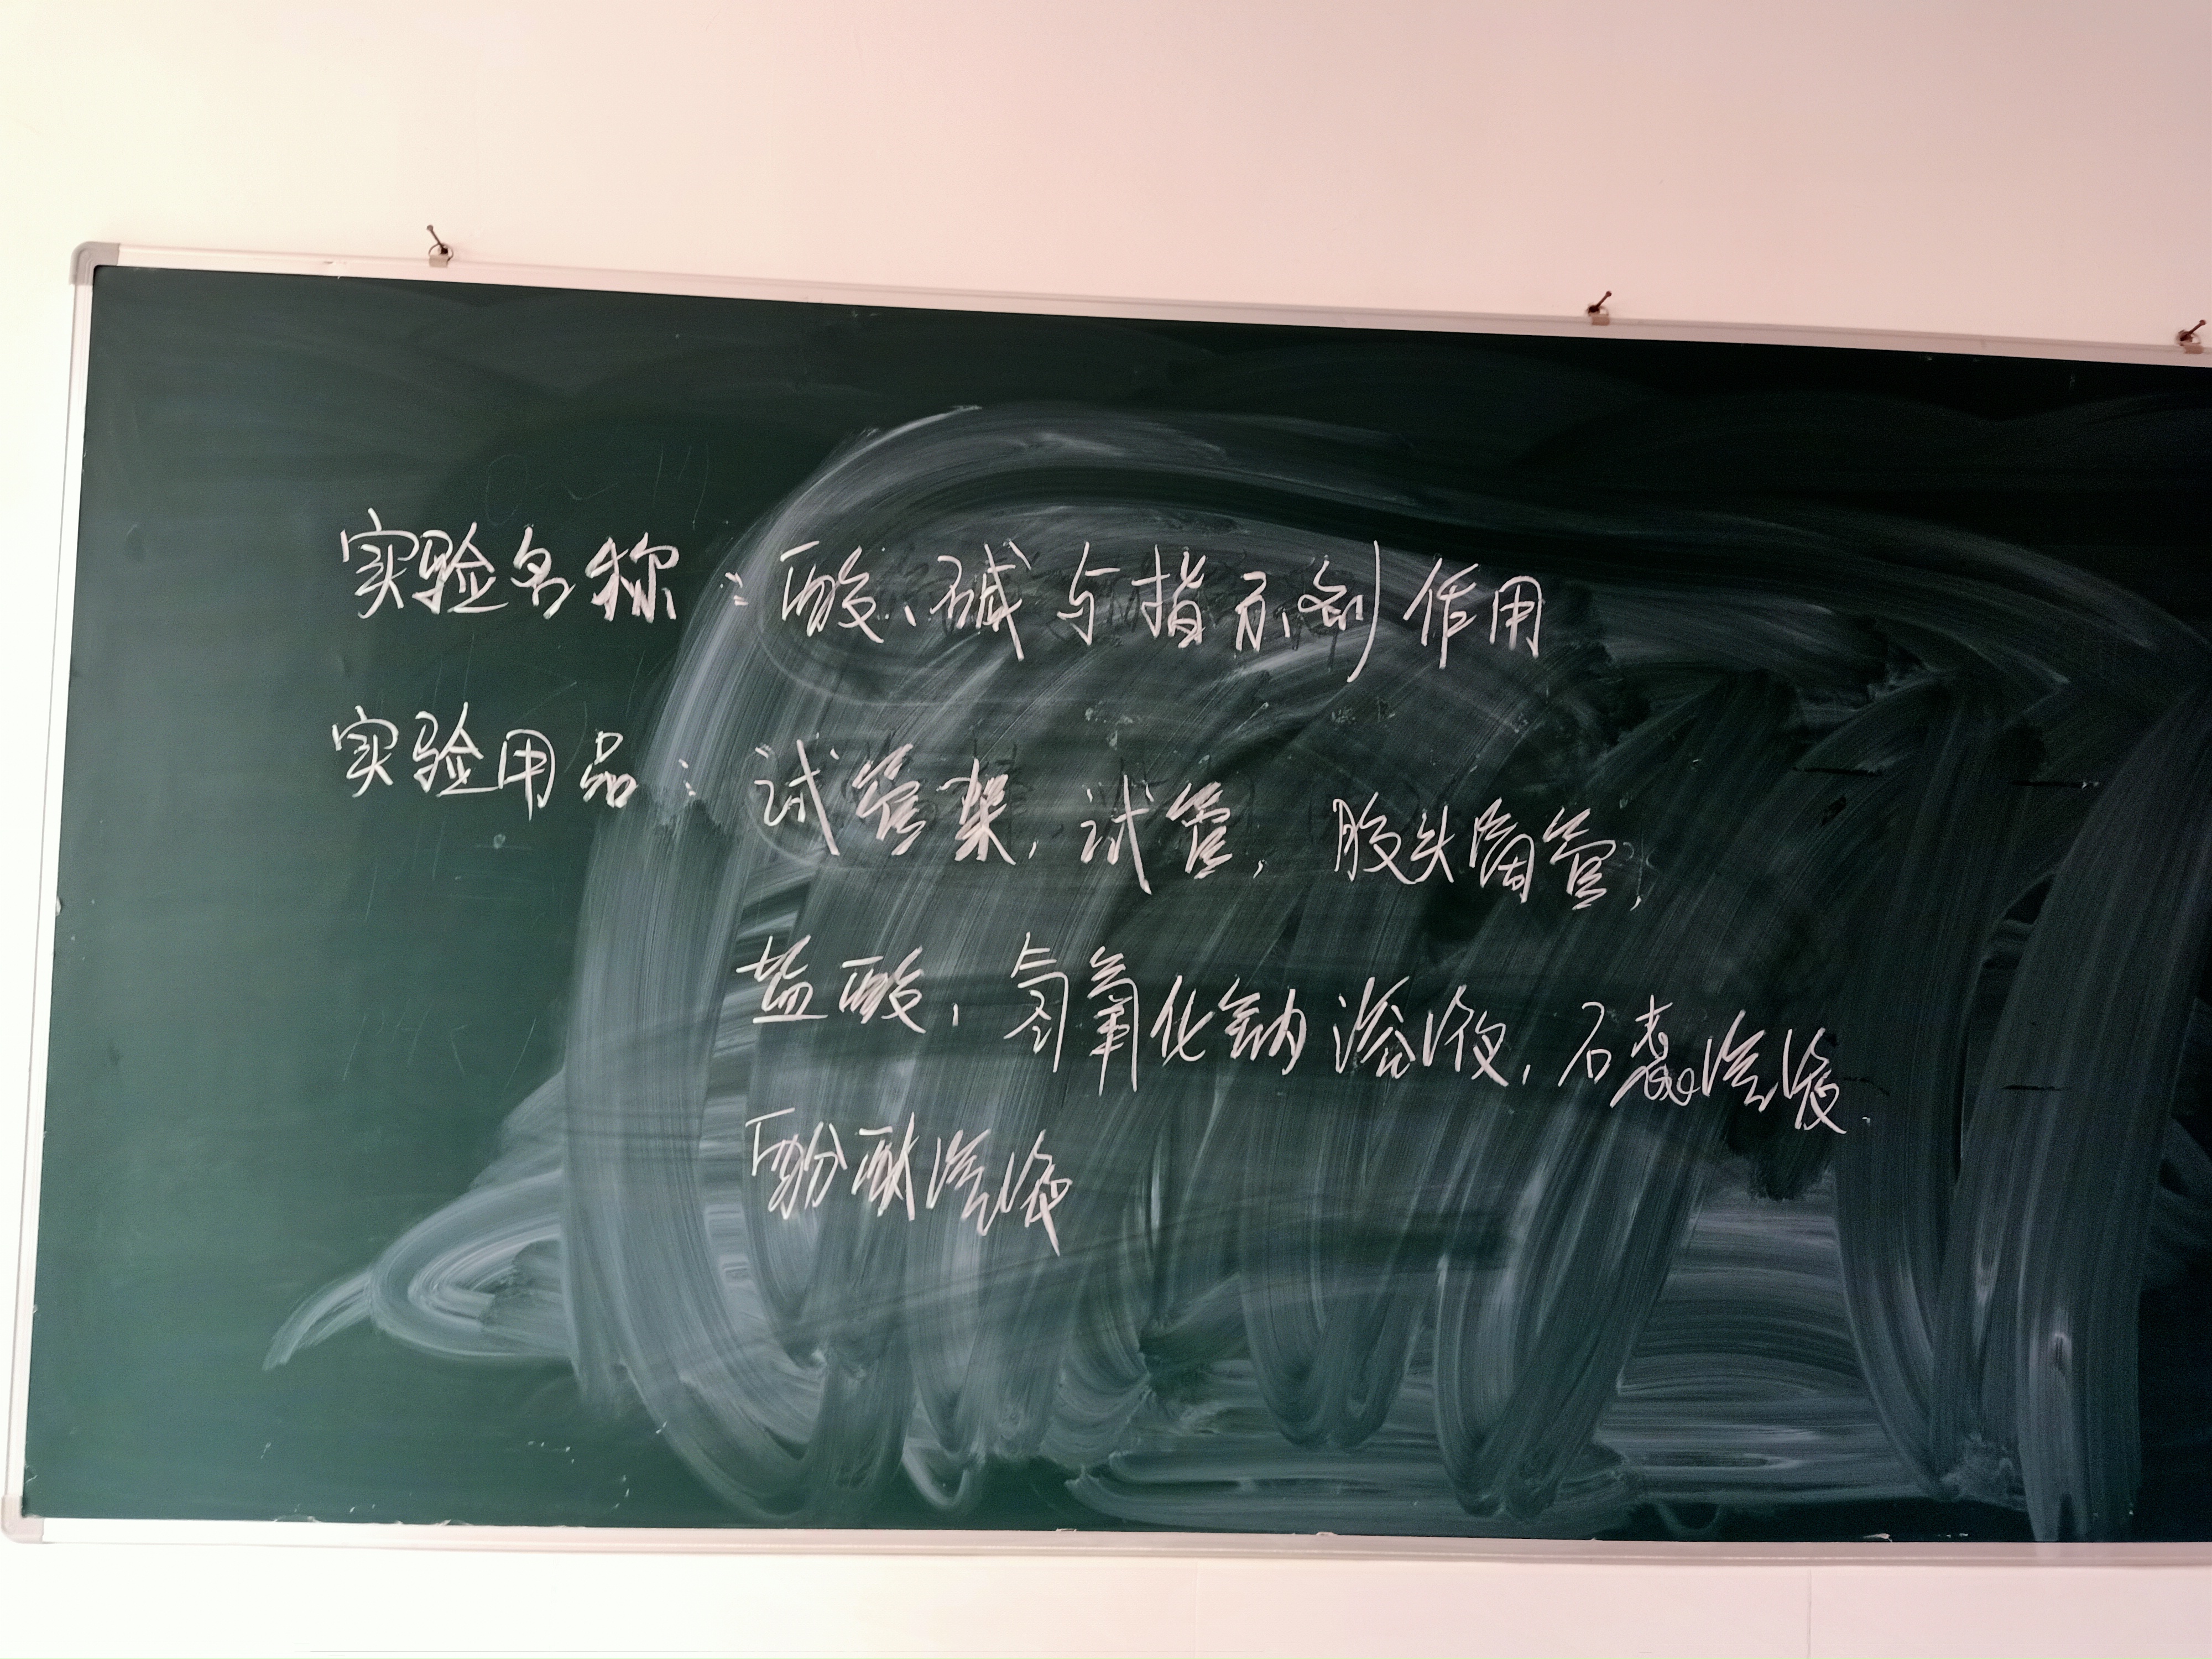 实验名称：酸、碱与指示剂作用
实验用品：试管架，试管，胶头滴管，
盐酸，氢氧化钠溶液，石蕊溶液
酚酞溶液